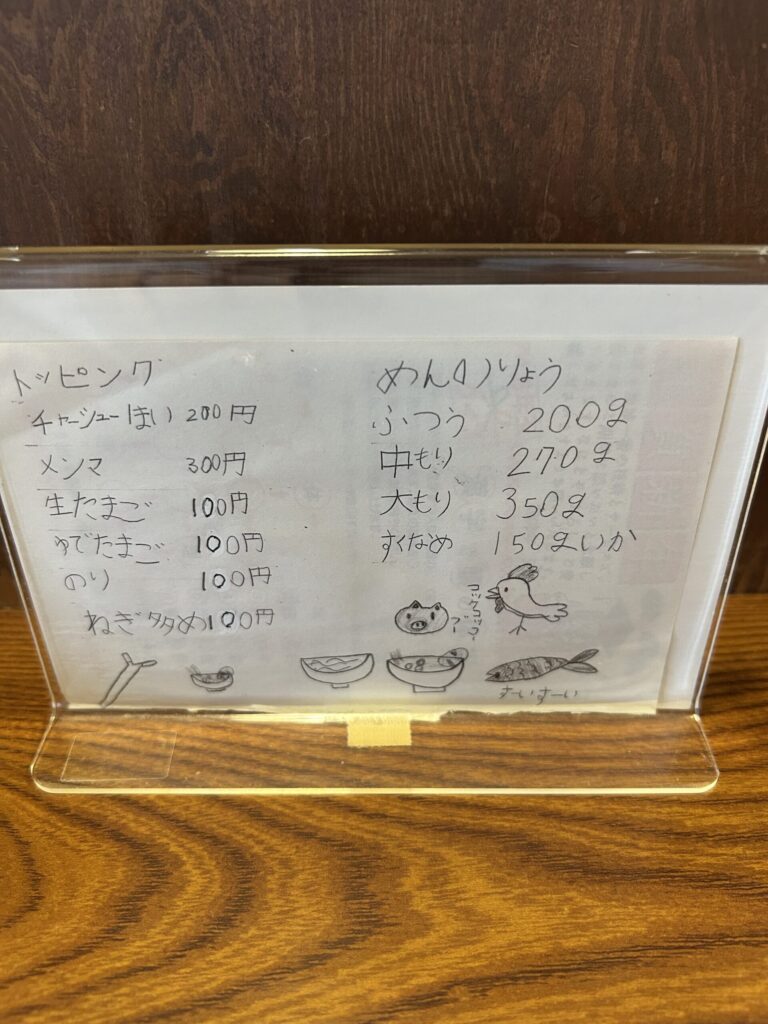 トッピング
チャーシュー1まい 200円
メンマ 300円
生たまご 100円
ゆでたまご 100円
のり 100円
ねぎ多め100円
めんのりょう
ふつう 200g
中もり 270g
大もり 350g
すくなめ 150gいか
コッケコッコー
ブー
すーいすーい